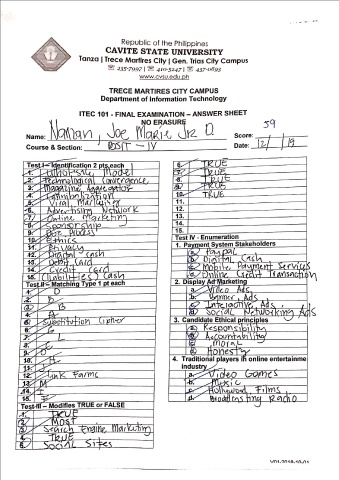 Republic of the Philippines
CAVITE STATE UNIVERSITY
Tanza | Trece Martires City | Gen. Trias City Campus
☎ 235-7997 | ☎ 410-5247 | ☎ 437-0693
www.cvsu.edu.ph
TRECE MARTIRES CITY CAMPUS
Department of Information Technology
ITEC 101 - FINAL EXAMINATION – ANSWER SHEET
NO ERASURE
Name: Joe Marie Jr. D.
Score: 59
Course & Section: BSIT - IV
Date: 12/ /19
Test I – Identification 2 pts.each
1. Wholesale Model
2. Technological Convergence
3. Magazine Aggregator
4. Cannibalization
5. Viral Marketing
6. Advertising Network
7. Online Marketing
8. Sponsorship
9. Due Process
10. Ethics
11. Privacy
12. Digital Cash
13. Debit Card
14. Credit Card
15. Liabilities Cash
Test II – Matching Type 1 pt each
1. D
2. B
3. B
4. A
5. Substitution Cipher
6. G
7. L
8.
9. O
10. H
11.
12. Link Farms
13. M
14. I
15. F
Test III – Modifies TRUE or FALSE
1. TRUE
2. Most
3. Search Engine Marketing
4. TRUE
5. Social Sites
6. TRUE
7. TRUE
8. TRUE
9. TRUE
10. TRUE
11.
12.
13.
14.
15.
Test IV - Enumeration
1. Payment System Stakeholders
a. Paypal
b. Digital Cash
c. Mobile Payment Services
d. Online Credit Transaction
2. Display Ad Marketing
a. Video Ads
b. Banner Ads
c. Interactive Ads
d. Social Networking Ads
3. Candidate Ethical principles
a. Responsibility
b. Accountability
c. Moral
d. Honesty
4. Traditional players in online entertainme
industry
a. Video Games
b. Music
c. Hollywood Films
d. Broadcasting Radio